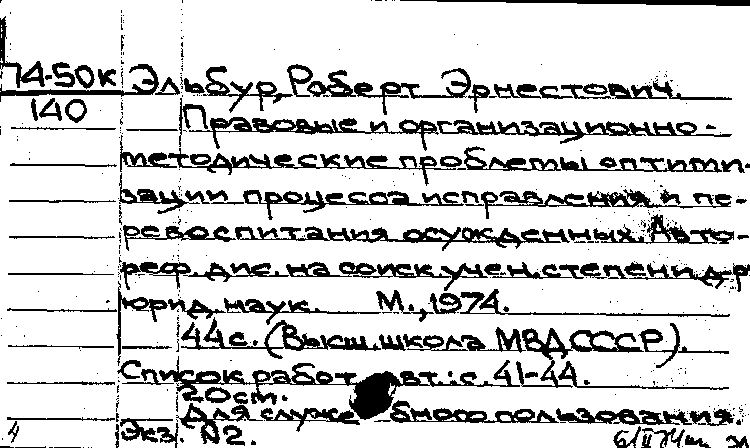 74-50к Эльбур, Роберт Эрнестович.
140
Правовые и организационно-
методические проблемы оптими-
зации процесса исправления и пе-
ревоспитания осужденных. Авто-
реф. дис. на соиск. учен. степени д-р
юрид. наук. М., 1974.
44с. (Высш. школа МВД СССР).
Список работ авт.: с. 41-44.
20см.
Для служебного пользования.
Экз. №2.
4